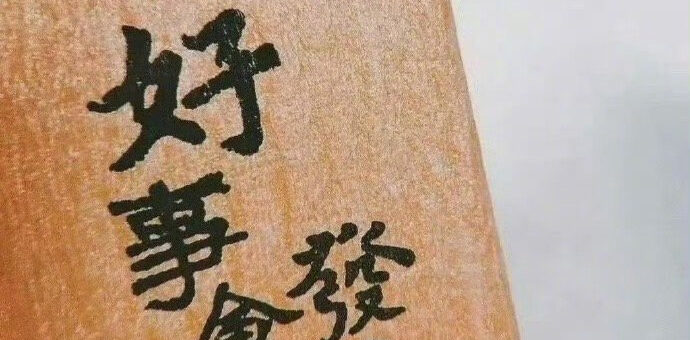 好
事
會
發